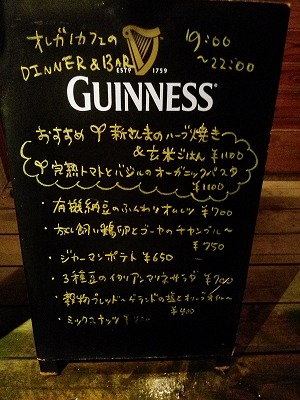 オーガニカフェの
DINNER & BAR
19:00
~22:00
ESTD 1759
GUINNESS
おすすめ 新さんまのハーブ焼き
& 玄米ごはん ¥1100
完熟トマトとバジルのオーガニックパスタ
¥1100
・有機納豆のふんわりオムレツ ¥700
・放し飼い鶏卵とゴーヤのチャンプルー
¥750
・ジャーマンポテト ¥650
・3種豆のイタリアンマリネサラダ ¥700
・穀物ブレッド〜ゲランドの塩とオリーブオイル〜
¥400
・ミックスナッツ